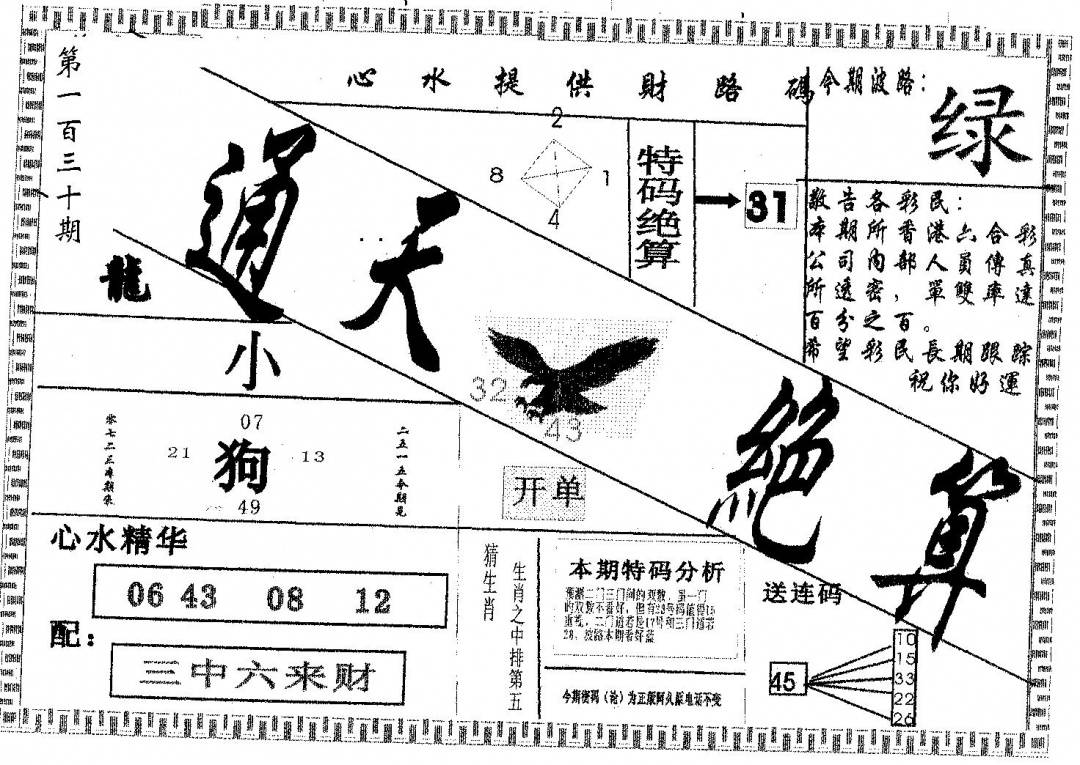 第一百三十期
心水提供財路碼
今期波路：
绿
通天
絕算
龍
小
2
8
1
4
特码绝算
31
敬告各彩民：
本期所香港六合彩
公司内部人員傳真
所透密，單雙率達
百分之百。
希望彩民長期跟踪
祝你好運
32
43
开单
07
21
狗
13
49
二五一五今期見
心水精华
06 43 08 12
配：
三中六来财
猜生肖
生肖之中排第五
本期特码分析
今期密码（论）为正版阿久保电话不变
送连码
45
10
15
33
22
26